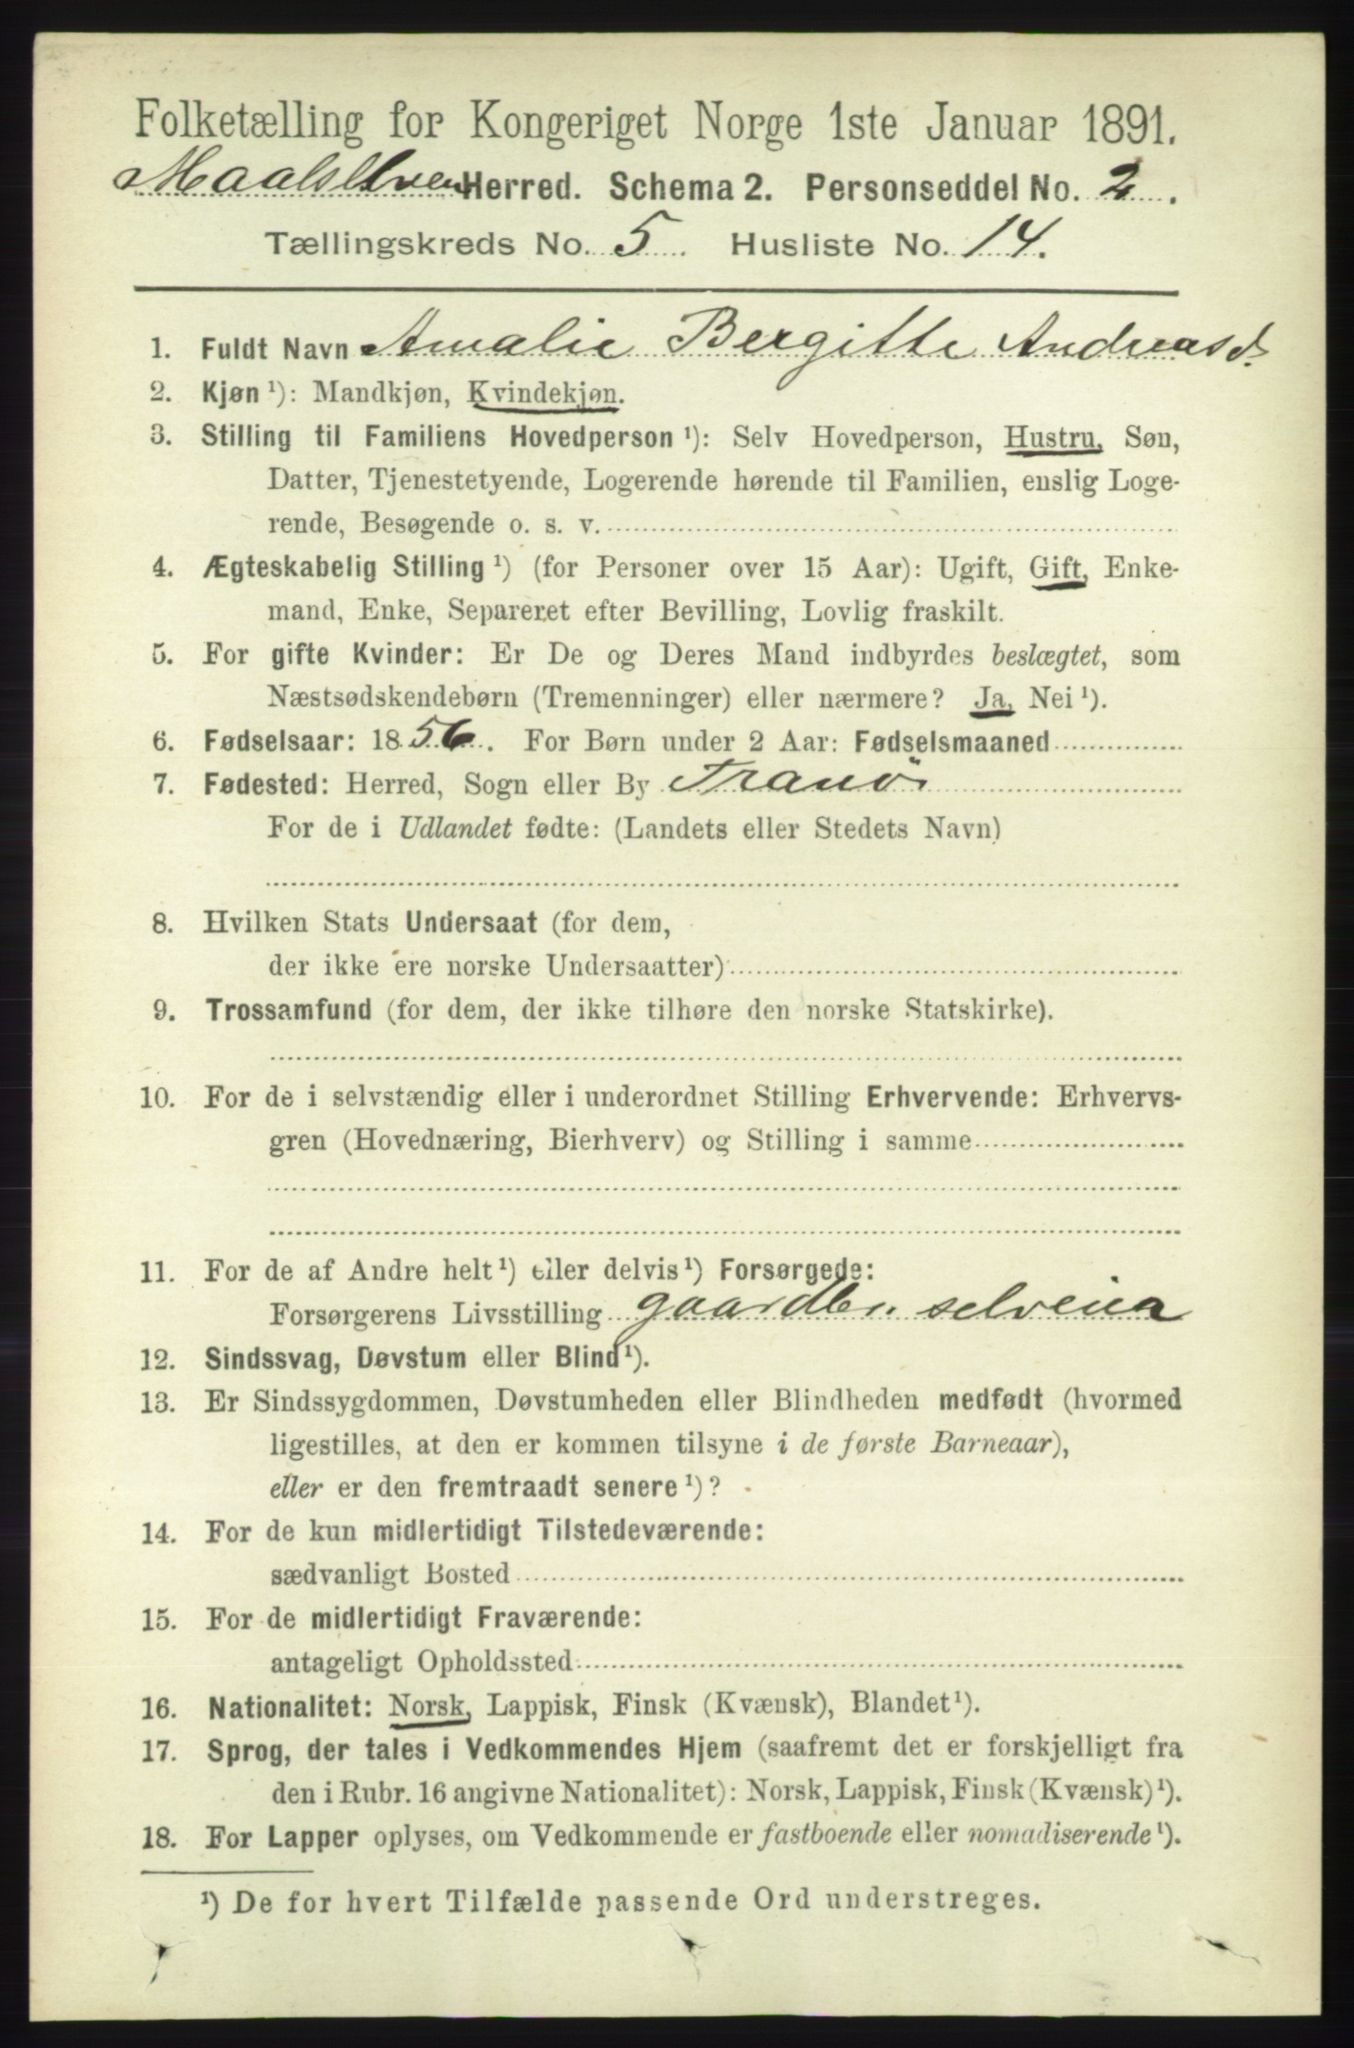 Folketælling for Kongeriget Norge 1ste Januar 1891.
Maalselven Herred. Schema 2. Personseddel No. 2.
Tællingskreds No. 5. Husliste No. 14.
1. Fuldt Navn Amalie Bergitte Andreasd.
2. Kjøn ¹): Mandkjøn, Kvindekjøn.
3. Stilling til Familiens Hovedperson ¹): Selv Hovedperson, Hustru, Søn,
Datter, Tjenestetyende, Logerende hørende til Familien, enslig Loge-
rende, Besøgende o. s. v.
4. Ægteskabelig Stilling ¹) (for Personer over 15 Aar): Ugift, Gift, Enke-
mand, Enke, Separeret efter Bevilling, Lovlig fraskilt.
5. For gifte Kvinder: Er De og Deres Mand indbyrdes beslægtet, som
Næstsødskendebørn (Tremenninger) eller nærmere? Ja, Nei ¹).
6. Fødselsaar: 1856. For Børn under 2 Aar: Fødselsmaaned
7. Fødested: Herred, Sogn eller By Tranö
For de i Udlandet fødte: (Landets eller Stedets Navn)
8. Hvilken Stats Undersaat (for dem,
der ikke ere norske Undersaatter)
9. Trossamfund (for dem, der ikke tilhøre den norske Statskirke).
10. For de i selvstændig eller i underordnet Stilling Erhvervende: Erhvervs-
gren (Hovednæring, Bierhverv) og Stilling i samme
11. For de af Andre helt ¹) eller delvis ¹) Forsørgede:
Forsørgerens Livsstilling gaardbr. selveier
12. Sindssvag, Døvstum eller Blind ¹).
13. Er Sindssygdommen, Døvstumheden eller Blindheden medfødt (hvormed
ligestilles, at den er kommen tilsyne i de første Barneaar),
eller er den fremtraadt senere ¹)?
14. For de kun midlertidigt Tilstedeværende:
sædvanligt Bosted
15. For de midlertidigt Fraværende:
antageligt Opholdssted
16. Nationalitet: Norsk, Lappisk, Finsk (Kvænsk), Blandet ¹).
17. Sprog, der tales i Vedkommendes Hjem (saafremt det er forskjelligt fra
den i Rubr. 16 angivne Nationalitet): Norsk, Lappisk, Finsk (Kvænsk) ¹).
18. For Lapper oplyses, om Vedkommende er fastboende eller nomadiserende ¹).
¹) De for hvert Tilfælde passende Ord understreges.